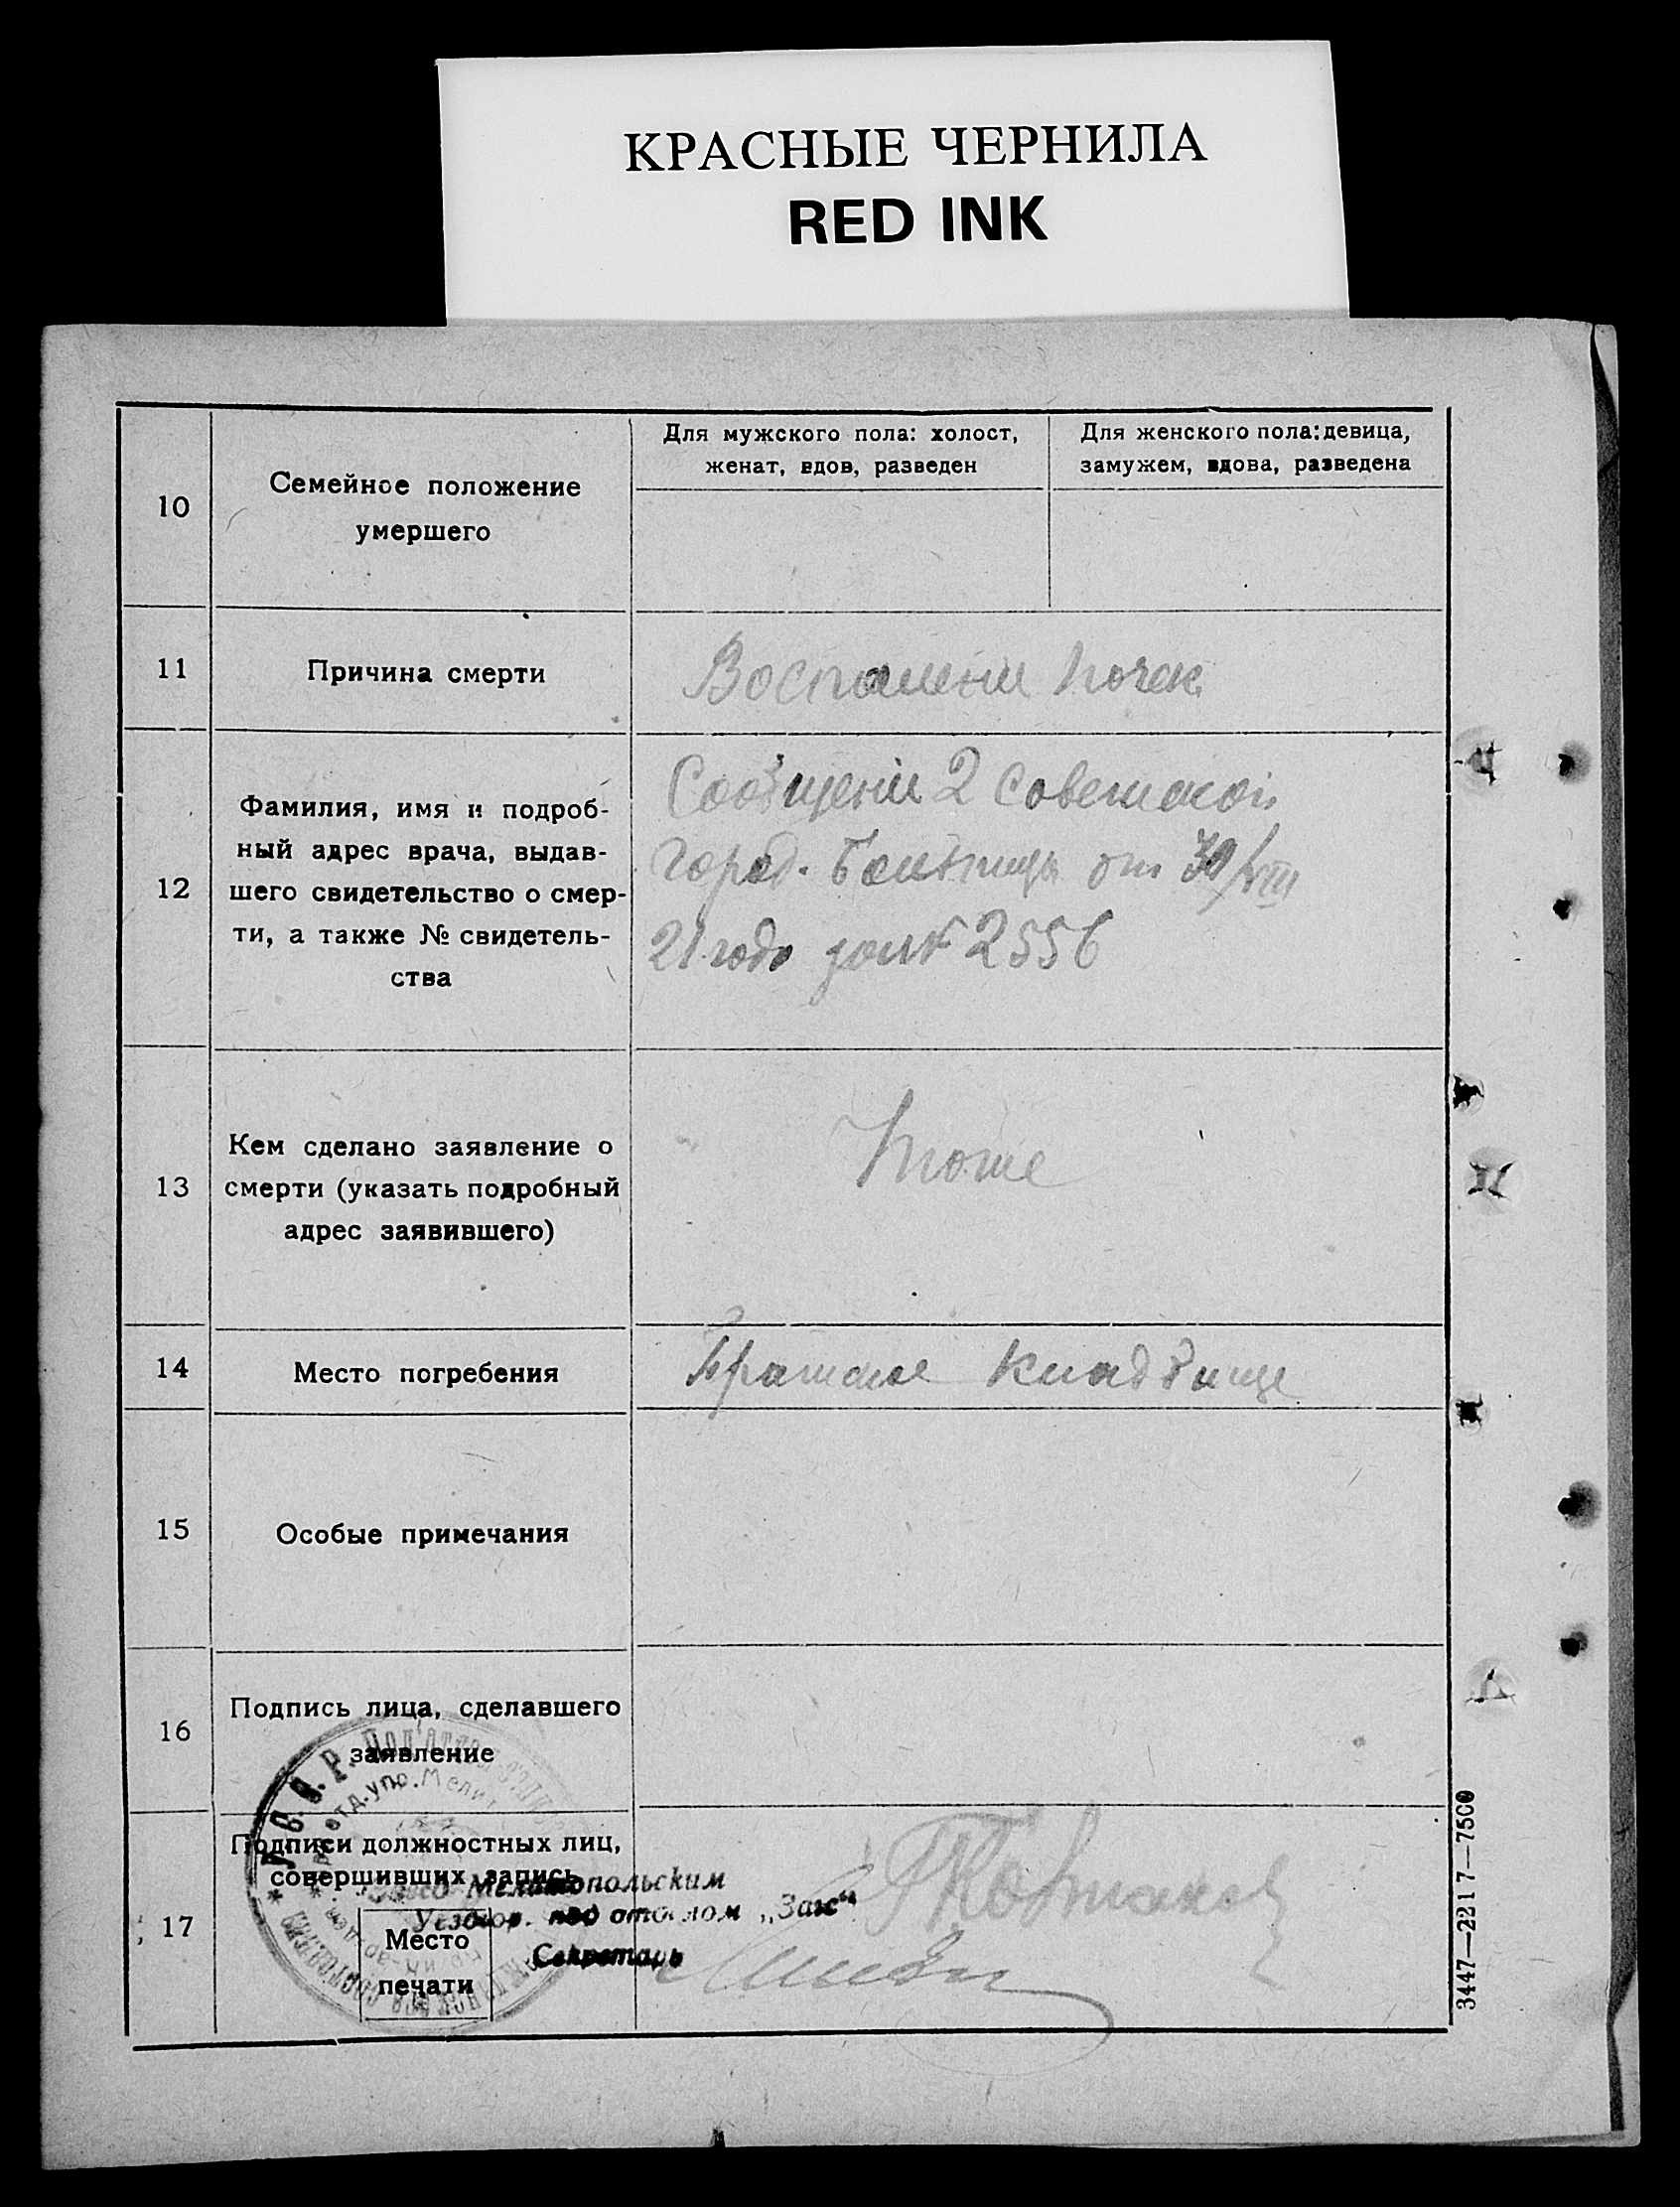 КРАСНЫЕ ЧЕРНИЛА
RED INK
10
Семейное положение
умершего
Для мужского пола: холост,
женат, вдов, разведен
Для женского пола: девица,
замужем, вдова, разведена
11
Причина смерти
Воспалении почек
12
Фамилия, имя и подроб-
ный адрес врача, выдав-
шего свидетельство о смер-
ти, а также № свидетель-
ства
Сообщении 2 советской
город. Больницы от 30/VIII
21 года за № 2556
13
Кем сделано заявление о
смерти (указать подробный
адрес заявившего)
Тоже
14
Место погребения
Братское кладбище
15
Особые примечания
16
Подпись лица, сделавшего
заявление
17
Подписи должностных лиц,
совершивших запись
Мелитопольским
Уездгор. под отделом „Загс“
Секретарь
Место
печати
У.С.С.Р.
отд. упр. Мелит
3447—2217—7500